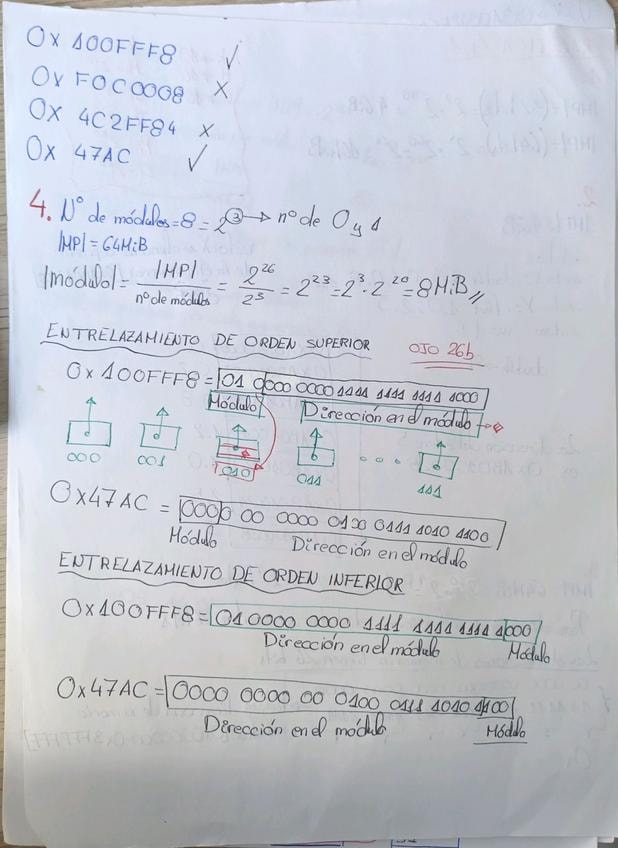 0x 100FFF8 ✓
0x F0C0008 x
0x 4C2FF84 x
0x 47AC ✓
4. Nº de módulos = 8 = 2³ → nº de 0 y 1
|MP| = 64MiB
|módulo| = |MP| / nº de módulos = 2²⁶ / 2³ = 2²³ = 2³ · 2²⁰ = 8MiB //
ENTRELAZAMIENTO DE ORDEN SUPERIOR OJO 26b
0x100FFF8 = 01 0000 0000 1111 1111 1111 1000
Módulo Dirección en el módulo
000 001 010 011 ... 111
0x47AC = 0000 00 0000 0100 0111 1010 1100
Módulo Dirección en el módulo
ENTRELAZAMIENTO DE ORDEN INFERIOR
0x100FFF8 = 01 0000 0000 1111 1111 1111 1000
Dirección en el módulo Módulo
0x47AC = 0000 0000 00 0100 0111 1010 1100
Dirección en el módulo Módulo